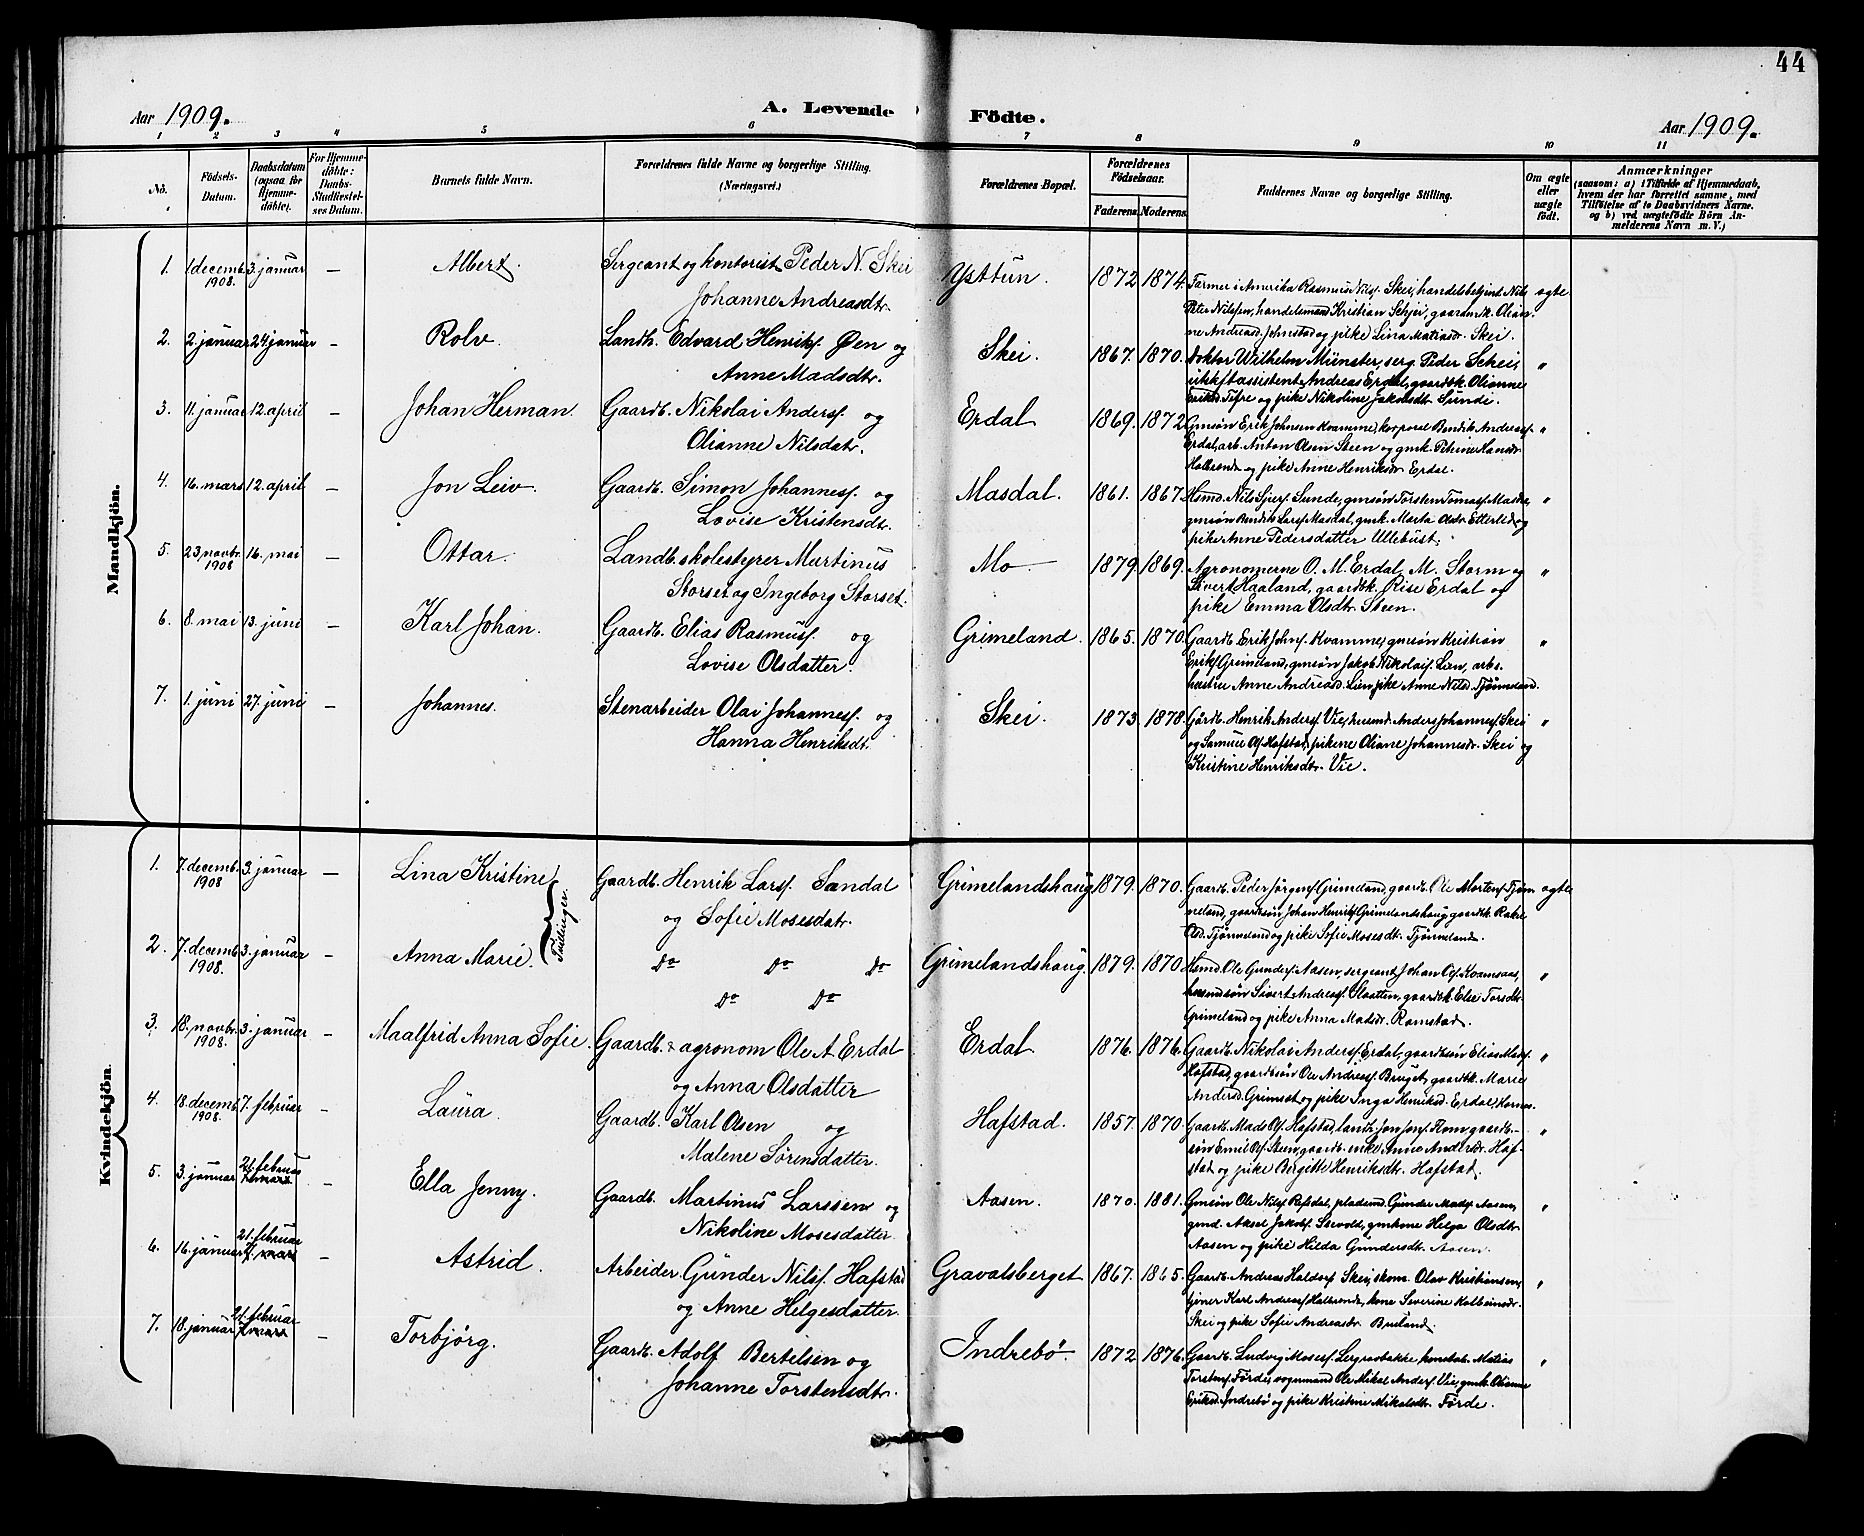 44
Aar 1909. A. Levende Födte. Aar 1909.
1 2 3 4 5 6 7 8 9 10 11
No.
Födsels-
Datum.
Daabsdatum
(ogsaa for
Hjemme-
döbte).
For Hjemme-
döbte:
Daabs-
Stadfæstel-
ses Datum.
Barnets fulde Navn.
Forældrenes fulde Navne og borgerlige Stilling.
(Næringsvei.)
Forældrenes Bopæl.
Forældrenes
Födselsaar.
Faderens. Moderens.
Faddernes Navne og borgerlige Stilling.
Om ægte
eller
uægte
födt.
Anmærkninger
(saasom: a) i Tilfælde af Hjemmedaab,
hvem der har forrettet samme, med
Tilföielse af to Daabsvidners Navne,
og b) ved uægtefödte Börn An-
melderens Navn m. V.)
Mandkjön.
1. 1 decemb. 1908. 3. januar — Albert. Sergeant og kontorist Peder N. Skei
Johanne Andreasdtr.
Ysttun. 1872 1874. Farmer i Amerika Rasmus Nilsf. Skei, handelsbetjent Nils ægte
Peter Nilssen, handelsmand Kristian Schjei, gaardm. k. Olian-
ne Andreasd. Johnstad og pike Lina Matiasd. Skei.
2. 2 januar 24 januar — Rolv. Landh. Edvard Henriks. Øen og
Anne Madsdtr.
Skei. 1867. 1870. Doktor Wilhelm Münster, serg. Peder Schei, "
utskiftassistent Andreas Erdal, gaardbk. Olianne
Eriksd. Tefre og pike Nikoline Jakobsdt. Sunde.
3. 11. januar 12. april — Johan Herman. Gaardb. Nikolai Andersf. og
Olianne Nilsdatr.
Erdal 1869. 1872 Gmsøn Erik Johnsen Kvamme, korporal Bendik Andreasf. "
Erdal, arb. Anton Olsen Steen og gmk. Petrine Hansdr.
Halbrend og pike Anne Henriksdr. Erdal.
4. 16. mars 12. april — Jon Leiv. Gaardb. Simon Johannesf. og
Lovise Kristensdtr.
Masdal. 1861. 1867. Hsmd. Nils Gjerf. Sunde, gmsøn Torsten Tomasf. Masdal, "
gmsøn Bendik Larsf. Masdal, gmk. Marta Olsdr. Etterlid og
pike Anne Pedersdatter Ullebust.
5. 23. novbr. 1908 16. mai — Ottar. Landb. skolestyrer Martinus
Storset og Ingeborg Storset.
Mo — 1879. 1869. Agronomerne O. M. Erdal, M. Storm og "
Sivert Haaland, gaardbk. Rise Erdal og
pike Emma Olsdtr. Steen.
6. 8. mai 13. juni — Karl Johan. Gaardb. Elias Rasmusf. og
Lovise Olsdatter.
Grimeland. 1865. 1870. Gaardb. Erik Johnf. Kvamme, gmsøn Kristian "
Eriksf. Grimeland, gmsøn Jakob Nikolaif. Lien, arbs.
hustru Anne Andreasd. Lien, pike Anne Nilsd. Tjønneland.
7. 1. juni 27. juni — Johannes. Stenarbeider Olai Johannesf. og
Hanna Henriksdt.
Skei. 1873. 1878. Gårdb. Henrik Andersf. Vie, husmd. Anders Johannesf. Skei "
og Samuel Olf. Hafstad, pikene Oliane Johannesdr. Skei og
Kristine Henriksdtr. Vie.
Kvindekjön.
1. 7. decemb. 1908 3. januar — Lina Kristine Gaardb. Henrik Larsf. Sandal
og Sofie Mosesdatr.
Tvillinger.
Grimelandshaug 1879. 1870. Gaardb. Peder Jørgenf. Grimeland, gaardb. Ole Mortenf. Tjøn- ægte
neland, gaardbsøn Johan Henrikf. Grimelandshaug, gaardbk. Rakel
Olsd. Tjønneland og pike Sofie Mosesdt. Tjønneland.
2. 7. decemb 1908. 3. januar — Anna Marie. Do Do Do
Do Do
Grimelandshaug. 1879. 1870. Hsmd. Ole Gundersf. Aasen, sergeant Johan Olf. Kvamsaas, "
husmdsøn Sivert Andreasf. Slaatten, gaardbk. Elie Torsdtr.
Grimeland og pike Anna Matsdr. Ramstad.
3. 18. novbr. 1908. 3. januar — Maalfrid Anna Sofie. Gaardb. & agronom Ole A Erdal
og Anna Olsdatter
Erdal 1876. 1876. Gaardb. Nikolai Andersf. Erdal, gaardbsøn Elias Madsf. "
Hafstad, gaardbsøn Ole Andreasf. Bruget, gaardbk. Marie
Andersd. Grimset og pike Inga Henriksd. Erdal, Hornes.
4. 18. decemb. 1908. 7. februar — Laura. Gaardb. Karl Olsen og
Malene Sørensdatter.
Hafstad. 1857. 1870. Gaardb. Mads Olf. Hafstad, landh. Jon Jonf. Rom, gaardb- "
søn Ennil Olf. Steen, gaardb. enke Anne Andersd. Haf-
stad og pike Bergitte Henriksdt. Hafstad.
5. 3. januar 21. februar — Ella Jenny. Gaardb. Martinus Larssen og
Nikoline Mosesdatter.
Aasen. 1870. 1881. Gmsøn Ole Nilsf. Refsdal, pladsmd. Gunder Madsf. Aasen, "
gmd. Aksel Jakobf. Sævold, gmkone Helga Olsdtr.
Aasen og pike Hilda Gundersdt. Aasen.
6. 16. januar 21. februar — Astrid. Arbeider Gunder Nilsf. Hafstad
og Anne Helgesdatter.
Gravalsberget 1867. 1865. Gaardb. Andreas Haldorf. Skei, skom. Olav Kristiansen, "
tjener Karl Andreasf. Halbrend, kone Severine Kolbeinsdr.
Skei og pike Sofie Andreasdr. Bruland.
7. 18. januar 21. februar — Torbjørg. Gaardb. Adolf Bertelsen og
Johanne Torstensdtr.
Indrebø. 1872 1876. Gaardb. Ludvig Mosesf. Lergravbakke, konstab. Matias "
Torstenf. Førde, sogumand Ole Mikal Andersf. Vie, gmk. Olianne
Eriksd. Indrebø og pike Kristine Mikalsdtr. Førde.